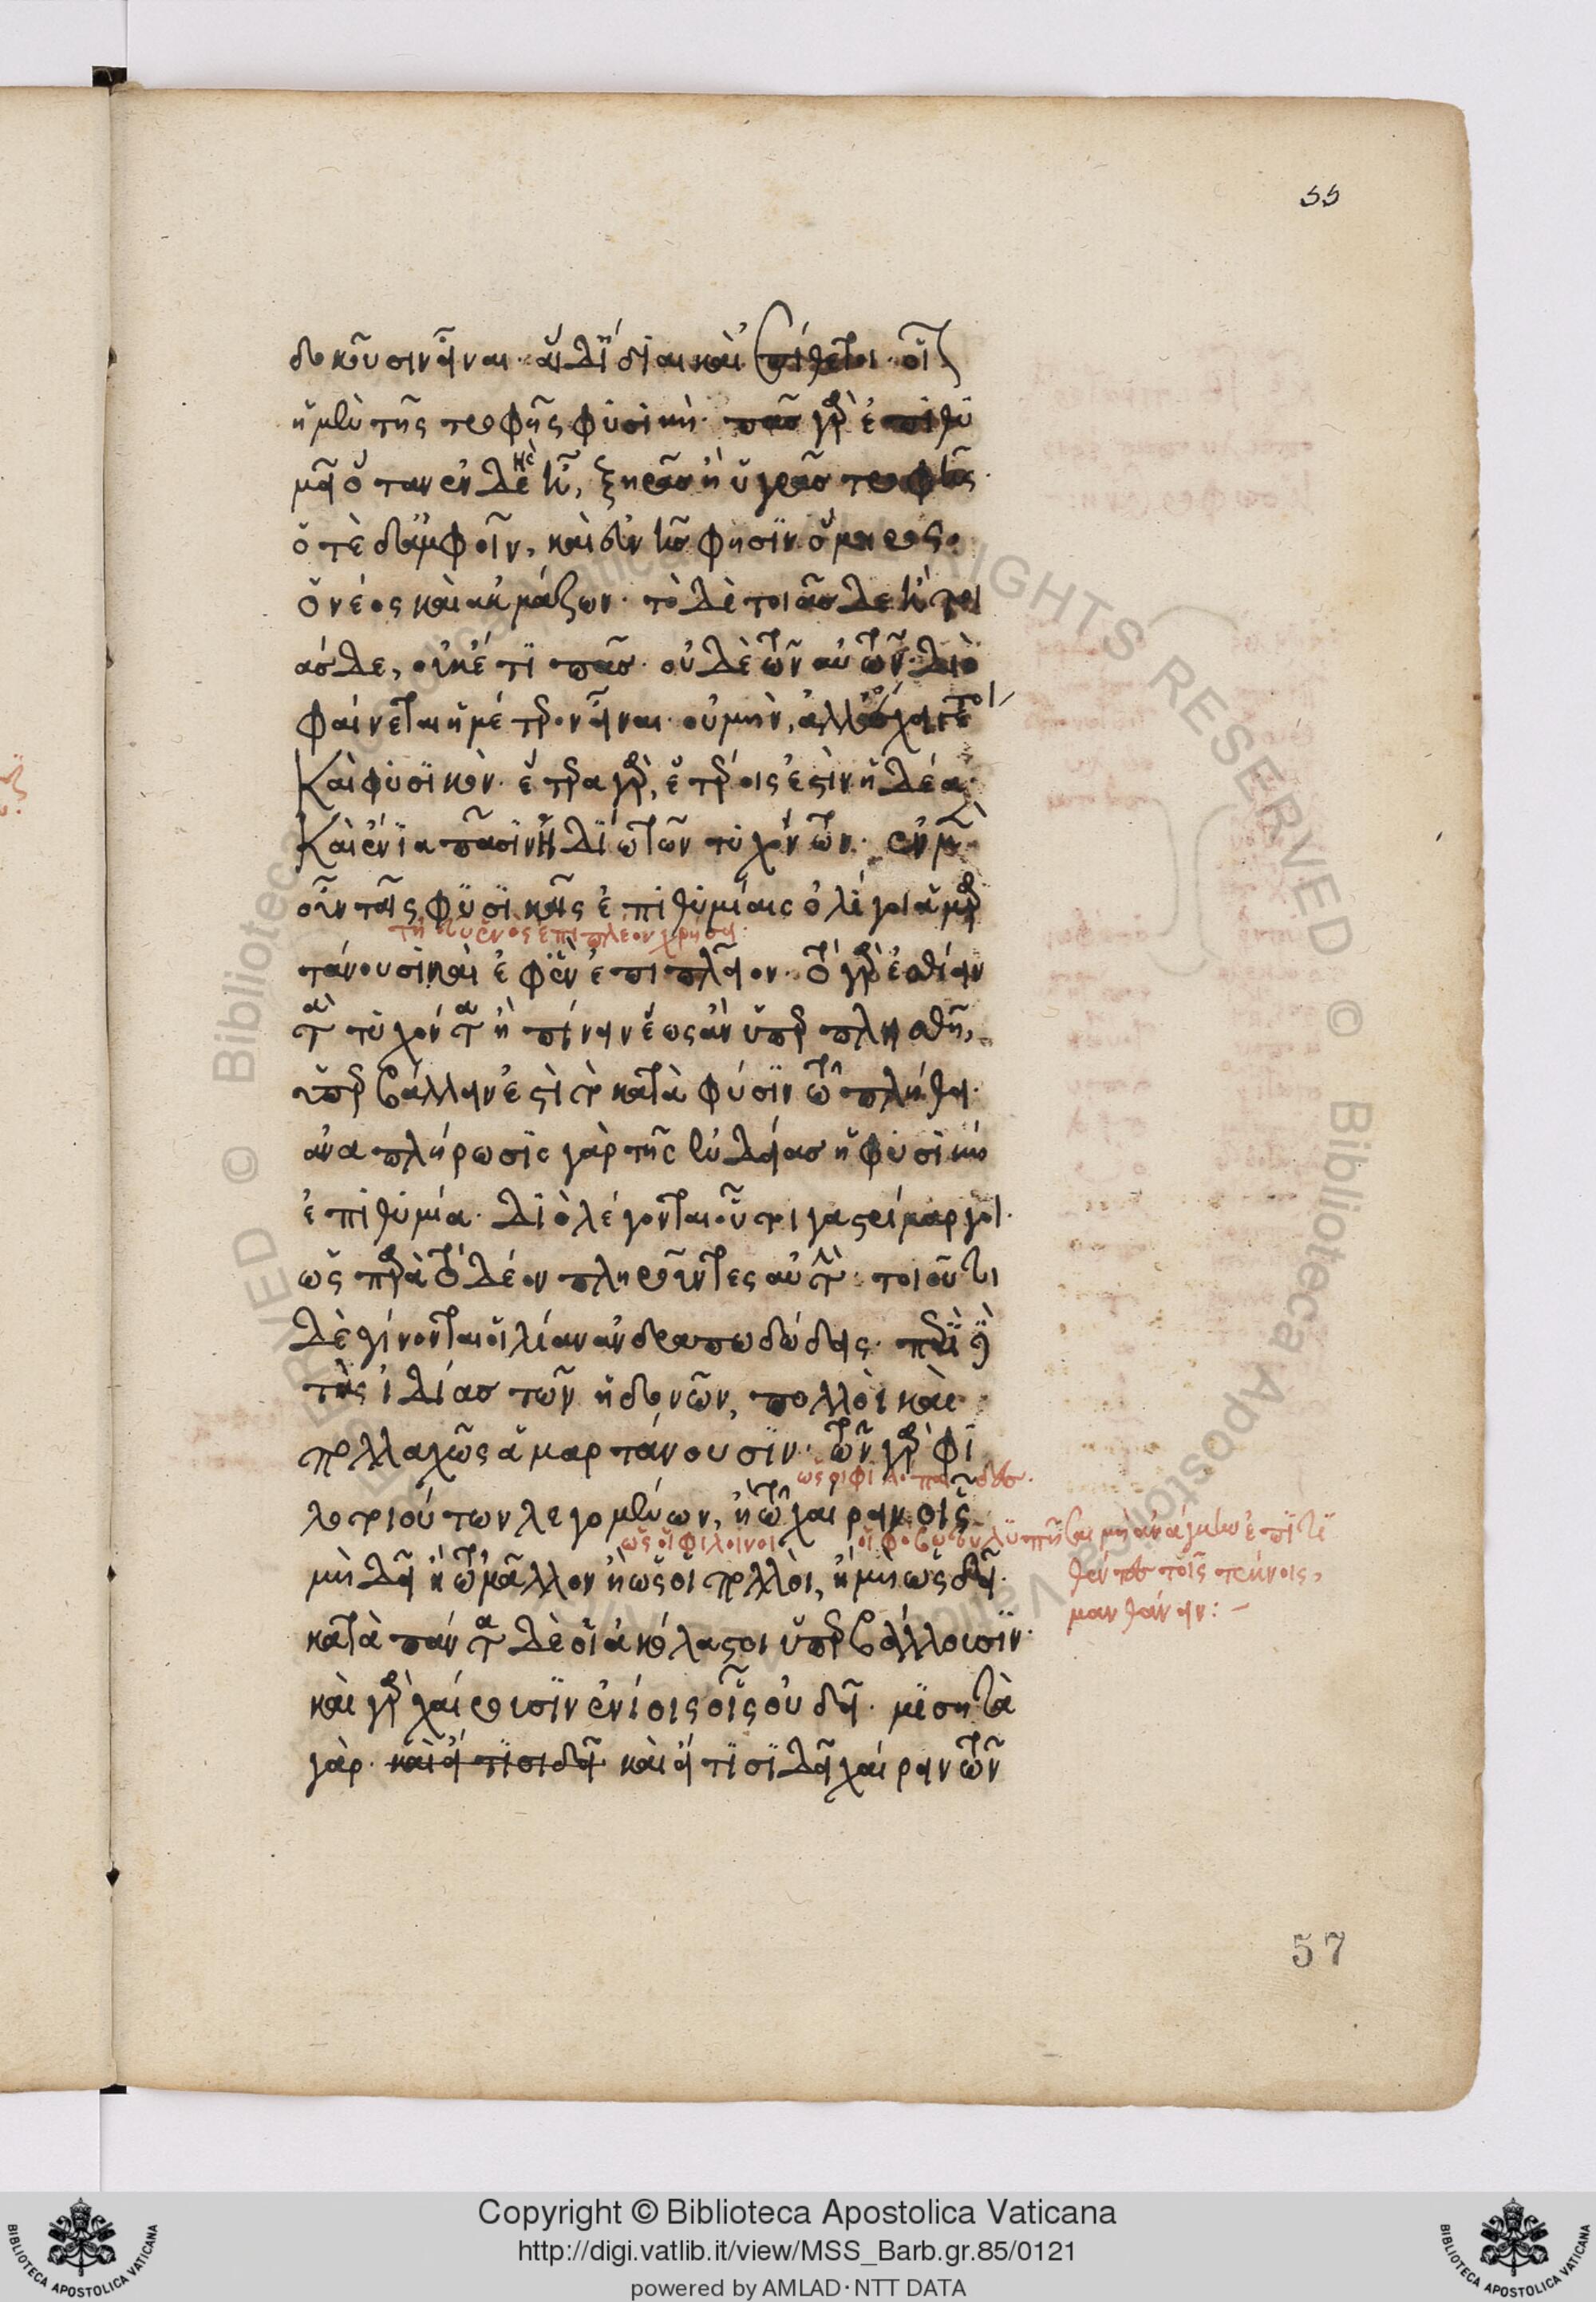 55
δοκοῦσιν εἶναι· αἱ δ' ἴδιαι καὶ ἐπίθετοι· οἷον
ἡ μὲν τῆς τροφῆς φυσική· πᾶσ γὰρ ἐπιθυ
μεῖ ὅταν ἐνδεὴς ᾖ, ξηρᾶσ ἢ ὑγρᾶσ τροφῆς·
ὁτὲ δ' ἀμφοῖν, καὶ εὐνῆσ φησὶν ὅμηρος·
ὁ νέος καὶ ἀκμάζων· τὸ δὲ τοιᾶσδε ἢ τοι
ᾶσδε, οὐκέτι πᾶσ· οὐδὲ τῶν αὐτῶν· διὸ
φαίνεται ἡμέτερον εἶναι· οὐ μὴν, ἀλλ' ἔχει γέ τοι
καὶ φυσικόν· ἕτερα γὰρ, ἑτέροις ἐστὶν ἡδέα·
καὶ ἔνια πᾶσιν ἡδίω τῶν τυχόντων· ἐν μὲν
οὖν ταῖς φυσικαῖς ἐπιθυμίαις ὀλίγοι ἁμαρ
τάνουσι καὶ ἐφ' ἓν ἐπὶ πλεῖον· τὸ γὰρ ἐσθίειν
τὰ τυχόντα ἢ πίνειν ἕως ἂν ὑπερπλησθῇ,
ὑπερβάλλειν ἐστὶ τὸ κατὰ φύσιν τῷ πλήθει·
ἀναπλήρωσις γὰρ τῆς ἐνδείασ ἡ φυσικὴ
ἐπιθυμία· διὸ λέγονται οὗτοι γαστρίμαργοι·
ὡς παρὰ τὸ δέον πληροῦντες αὐτήν· τοιοῦτοι
δὲ γίνονται οἱ λίαν ἀνδραπωδώδεις· περὶ δὲ
τὰς ἰδίασ τῶν ἡδονῶν, πολλοὶ καὶ
πολλαχῶς ἁμαρτάνουσιν· τῶν γὰρ φι
λοτοιούτων λεγομένων, ἢ τῷ χαίρειν οἷς
μὴ δεῖ ἢ τῷ μᾶλλον ἢ ὡς οἱ πολλοὶ, ἢ μὴ ὡς δεῖ·
κατὰ πάντα δὲ οἱ ἀκόλαστοι ὑπερβάλλουσιν·
καὶ γὰρ χαίρουσιν ἐνίοις οἷς οὐ δεῖ· μισητὰ
γὰρ· καὶ εἴ τισι δεῖ καὶ εἴ τισι δεῖ χαίρειν τῶν
ὡς οἱ φίλοινοι
μανθάνειν:-
57
Copyright © Biblioteca Apostolica Vaticana
http://digi.vatlib.it/view/MSS_Barb.gr.85/0121
powered by AMLAD·NTT DATA